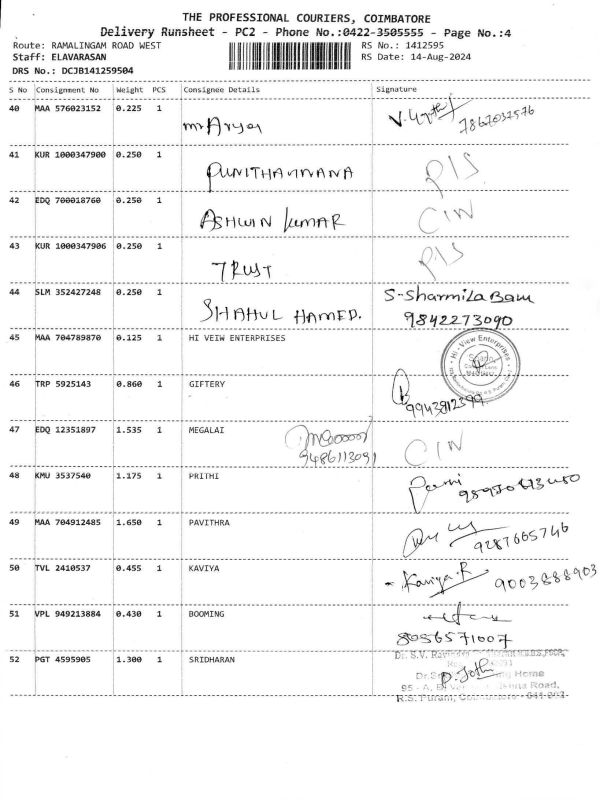 THE PROFESSIONAL COURIERS, COIMBATORE
Delivery Runsheet - PC2 - Phone No.:0422-3505555 - Page No.:4
Route: RAMALINGAM ROAD WEST RS No.: 1412595
Staff: ELAVARASAN RS Date: 14-Aug-2024
DRS No.: DCJB141259504
S No Consignment No Weight PCS Consignee Details Signature
40 MAA 576023152 0.225 1
41 KUR 1000347900 0.250 1 PUNITHAVNANA
42 EDQ 700018760 0.250 1 ASHWIN KUMAR
43 KUR 1000347906 0.250 1 TRUST
44 SLM 352427248 0.250 1 SHAHUL HAMED. S-Sharmila Banu
9842273090
45 MAA 704789870 0.125 1 HI VEIW ENTERPRISES Hi - View Enterprises
46 TRP 5925143 0.860 1 GIFTERY
9943812399
47 EDQ 12351897 1.535 1 MEGALAI
9486113091
48 KMU 3537540 1.175 1 PRITHI
49 MAA 704912485 1.650 1 PAVITHRA
9287665746
50 TVL 2410537 0.455 1 KAVIYA Kaviya.R 9003888903
51 VPL 949213884 0.430 1 BOOMING
8056571007
52 PGT 4595905 1.300 1 SRIDHARAN Dr. S.V.
P. Jothi Home
95 - A, Road,
R.S. Puram,